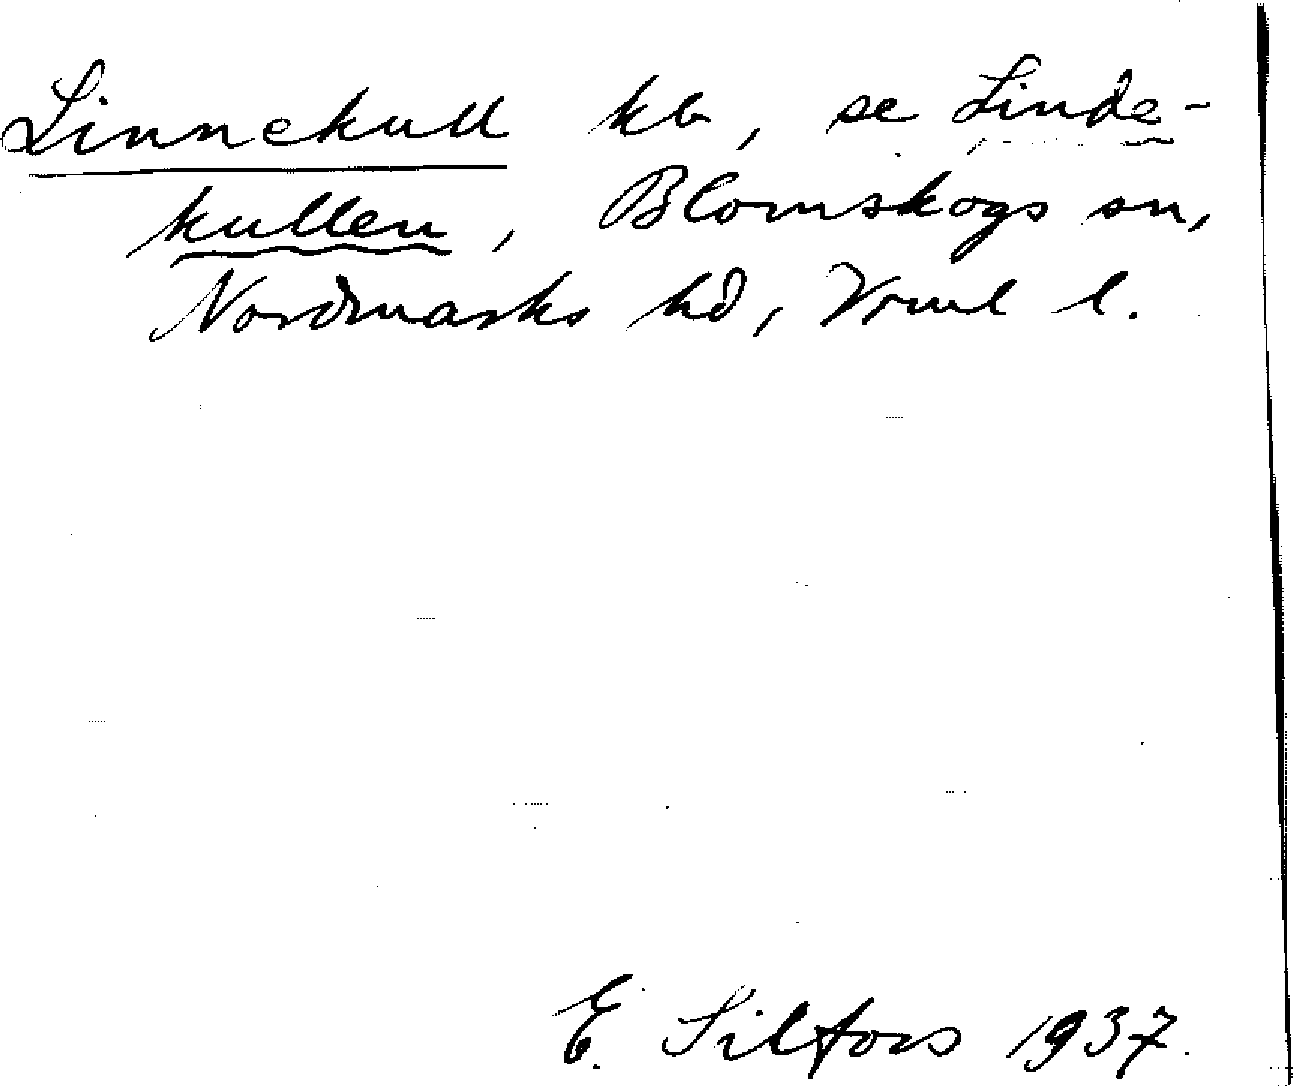 Linnekull kb, se Linde-
kullen, Blomskogs sn,
Nordmarks hd, Vrml l.
E. Silfors 1937.